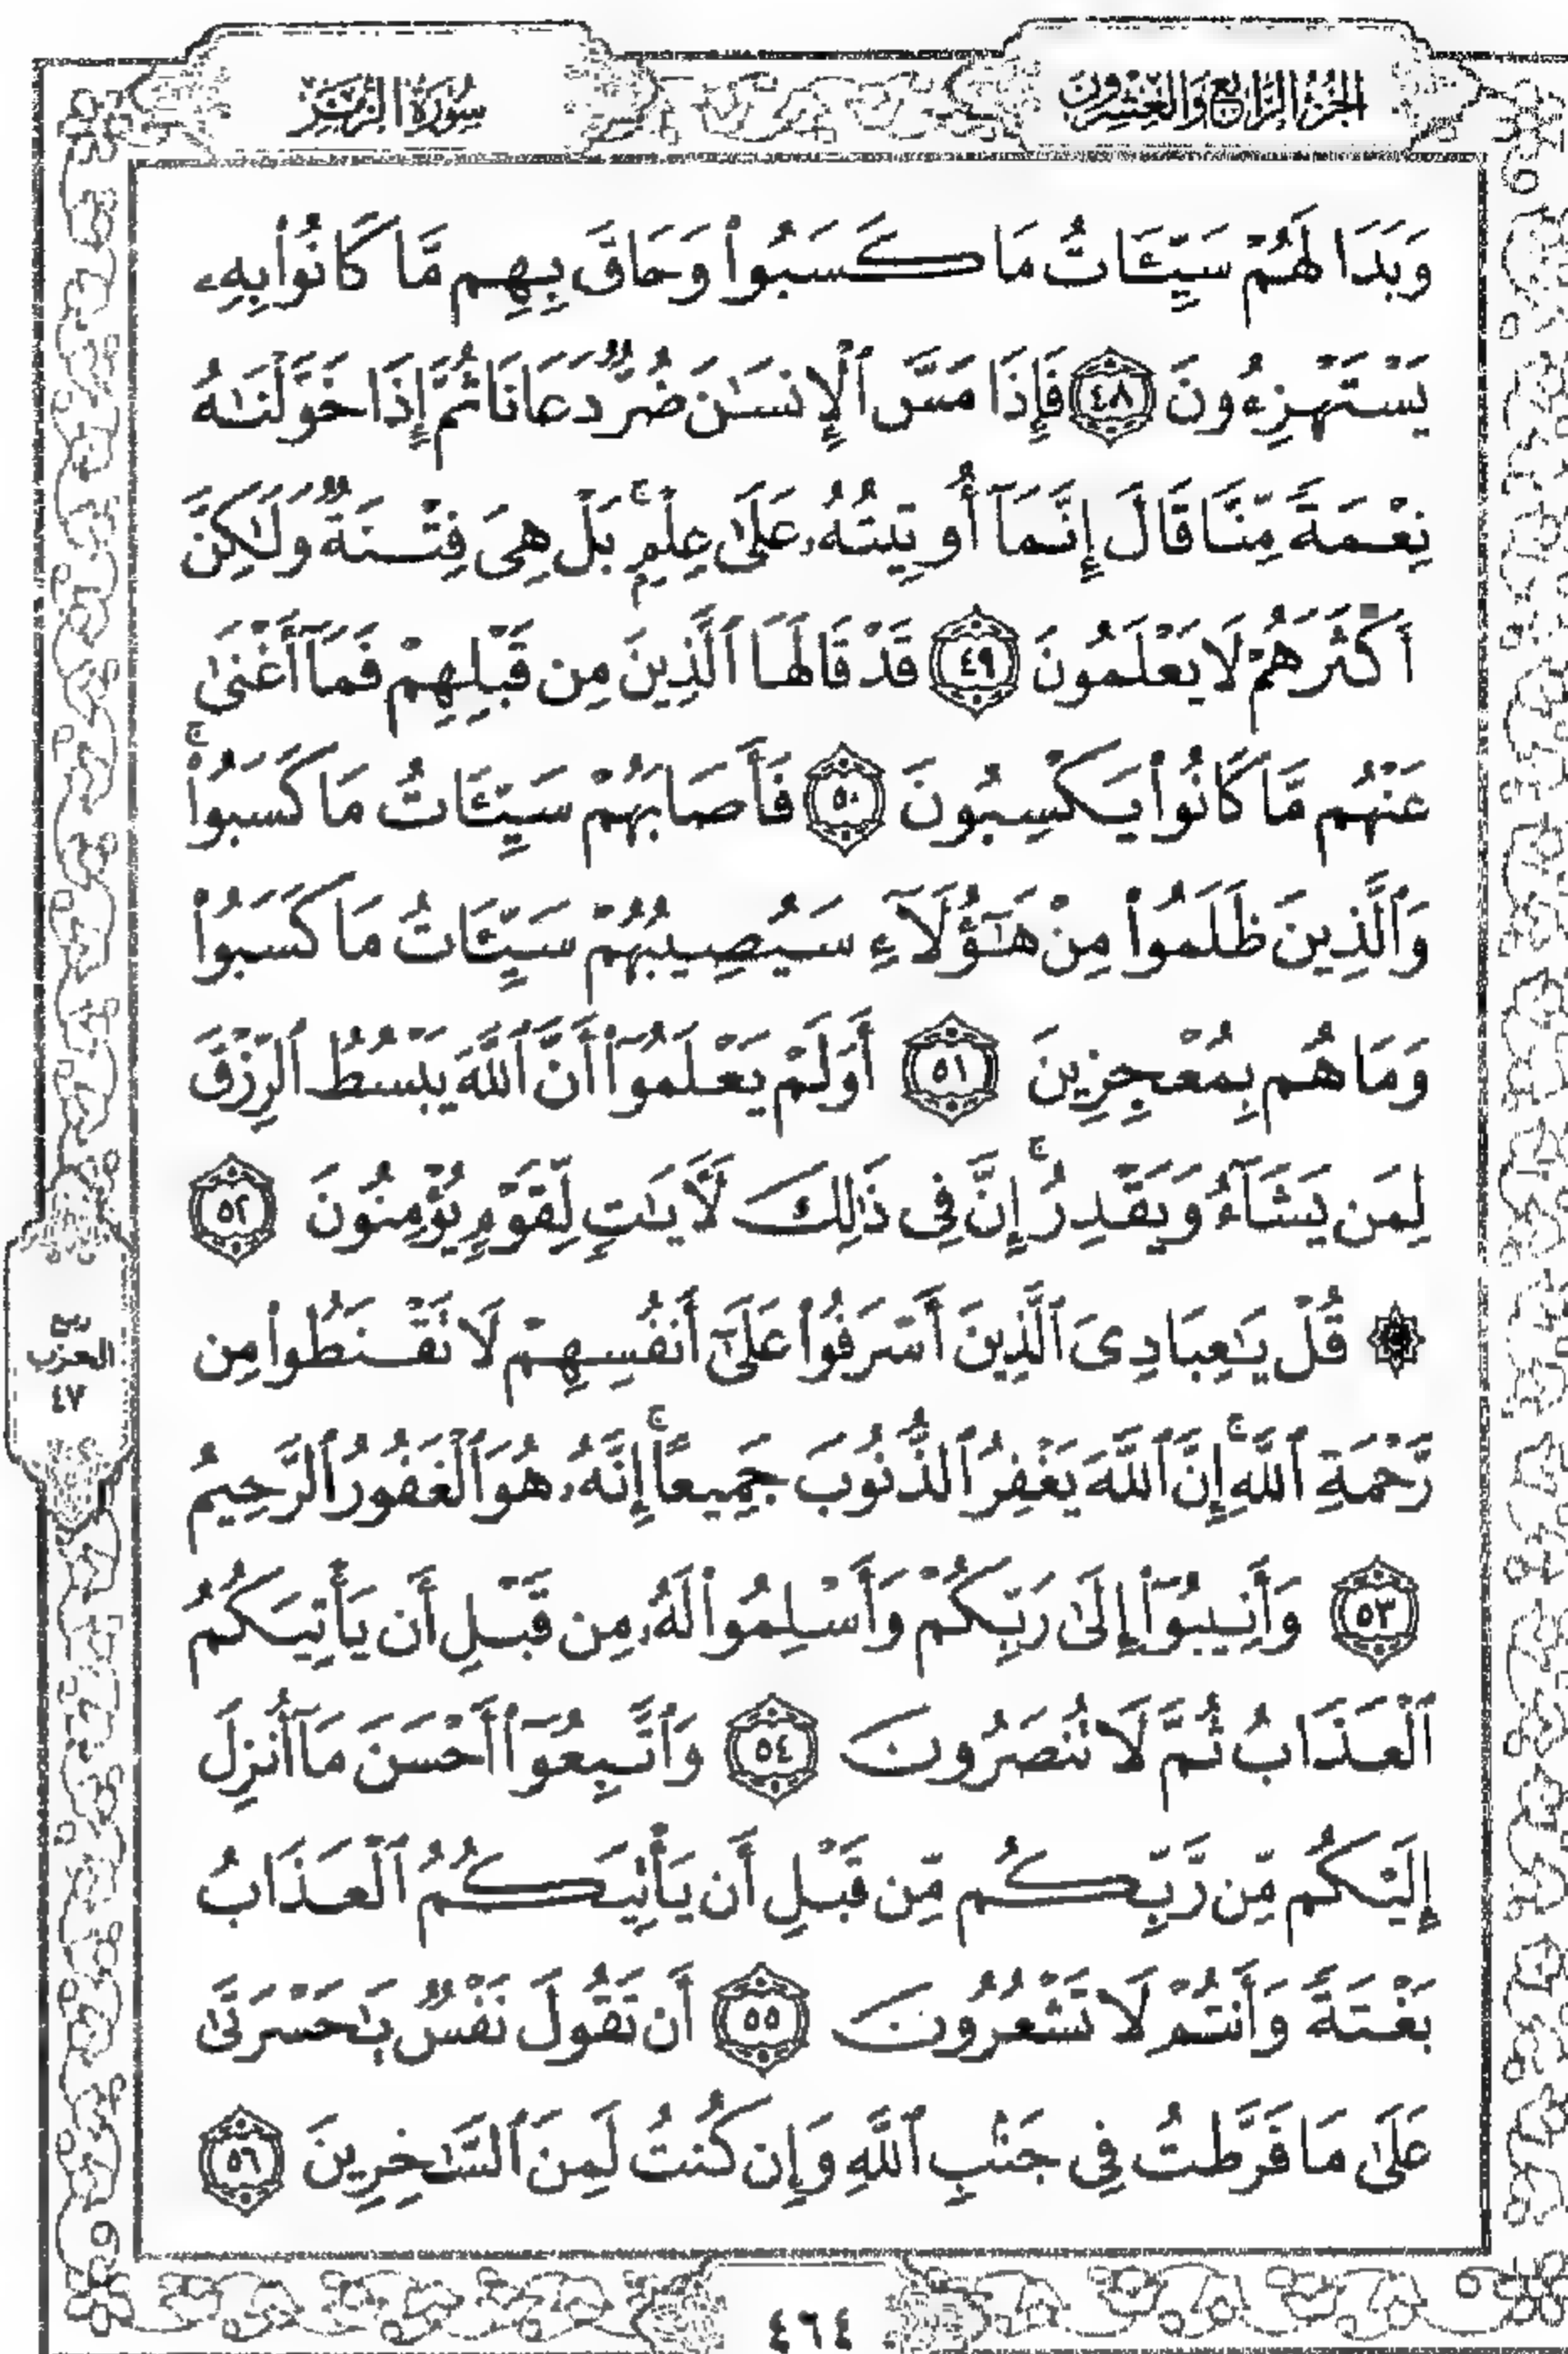 الجزء الرابع والعشرون
سورة الزمر
وَبَدَا لَهُمْ سَيِّـَٔاتُ مَا كَسَبُوا۟ وَحَاقَ بِهِم مَّا كَانُوا۟ بِهِۦ
يَسْتَهْزِءُونَ ٤٨ فَإِذَا مَسَّ ٱلْإِنسَٰنَ ضُرٌّ دَعَانَا ثُمَّ إِذَا خَوَّلْنَٰهُ
نِعْمَةً مِّنَّا قَالَ إِنَّمَآ أُوتِيتُهُۥ عَلَىٰ عِلْمٍۭ ۚ بَلْ هِىَ فِتْنَةٌ وَلَٰكِنَّ
أَكْثَرَهُمْ لَا يَعْلَمُونَ ٤٩ قَدْ قَالَهَا ٱلَّذِينَ مِن قَبْلِهِمْ فَمَآ أَغْنَىٰ
عَنْهُم مَّا كَانُوا۟ يَكْسِبُونَ ٥٠ فَأَصَابَهُمْ سَيِّـَٔاتُ مَا كَسَبُوا۟ ۚ
وَٱلَّذِينَ ظَلَمُوا۟ مِنْ هَٰٓؤُلَآءِ سَيُصِيبُهُمْ سَيِّـَٔاتُ مَا كَسَبُوا۟
وَمَا هُم بِمُعْجِزِينَ ٥١ أَوَلَمْ يَعْلَمُوٓا۟ أَنَّ ٱللَّهَ يَبْسُطُ ٱلرِّزْقَ
لِمَن يَشَآءُ وَيَقْدِرُ ۚ إِنَّ فِى ذَٰلِكَ لَـَٔايَٰتٍ لِّقَوْمٍ يُؤْمِنُونَ ٥٢
۞ قُلْ يَٰعِبَادِىَ ٱلَّذِينَ أَسْرَفُوا۟ عَلَىٰٓ أَنفُسِهِمْ لَا تَقْنَطُوا۟ مِن
رَّحْمَةِ ٱللَّهِ ۚ إِنَّ ٱللَّهَ يَغْفِرُ ٱلذُّنُوبَ جَمِيعًا ۚ إِنَّهُۥ هُوَ ٱلْغَفُورُ ٱلرَّحِيمُ
٥٣ وَأَنِيبُوٓا۟ إِلَىٰ رَبِّكُمْ وَأَسْلِمُوا۟ لَهُۥ مِن قَبْلِ أَن يَأْتِيَكُمُ
ٱلْعَذَابُ ثُمَّ لَا تُنصَرُونَ ٥٤ وَٱتَّبِعُوٓا۟ أَحْسَنَ مَآ أُنزِلَ
إِلَيْكُم مِّن رَّبِّكُم مِّن قَبْلِ أَن يَأْتِيَكُمُ ٱلْعَذَابُ
بَغْتَةً وَأَنتُمْ لَا تَشْعُرُونَ ٥٥ أَن تَقُولَ نَفْسٌ يَٰحَسْرَتَىٰ
عَلَىٰ مَا فَرَّطتُ فِى جَنۢبِ ٱللَّهِ وَإِن كُنتُ لَمِنَ ٱلسَّٰخِرِينَ ٥٦
ربع
الحزب
٤٧
٤٦٤